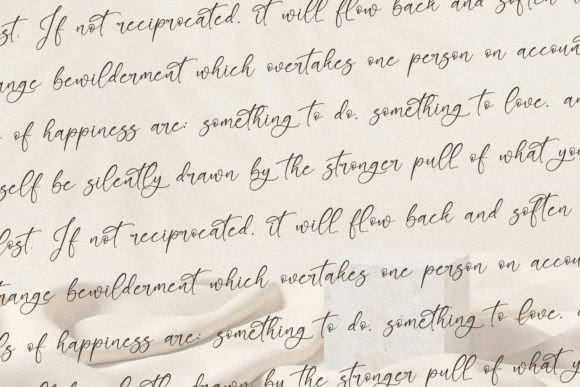 ost. If not reciprocated, it will flow back and soften
ange bewilderment which overtakes one person on accoun
of happiness are: something to do, something to love, an
self be silently drawn by the stronger pull of what you
lost. If not reciprocated, it will flow back and soften
trange bewilderment which overtakes one person on accou
ls of happiness are: something to do, something to love,
rself be silently drawn by the stronger pull of what yo